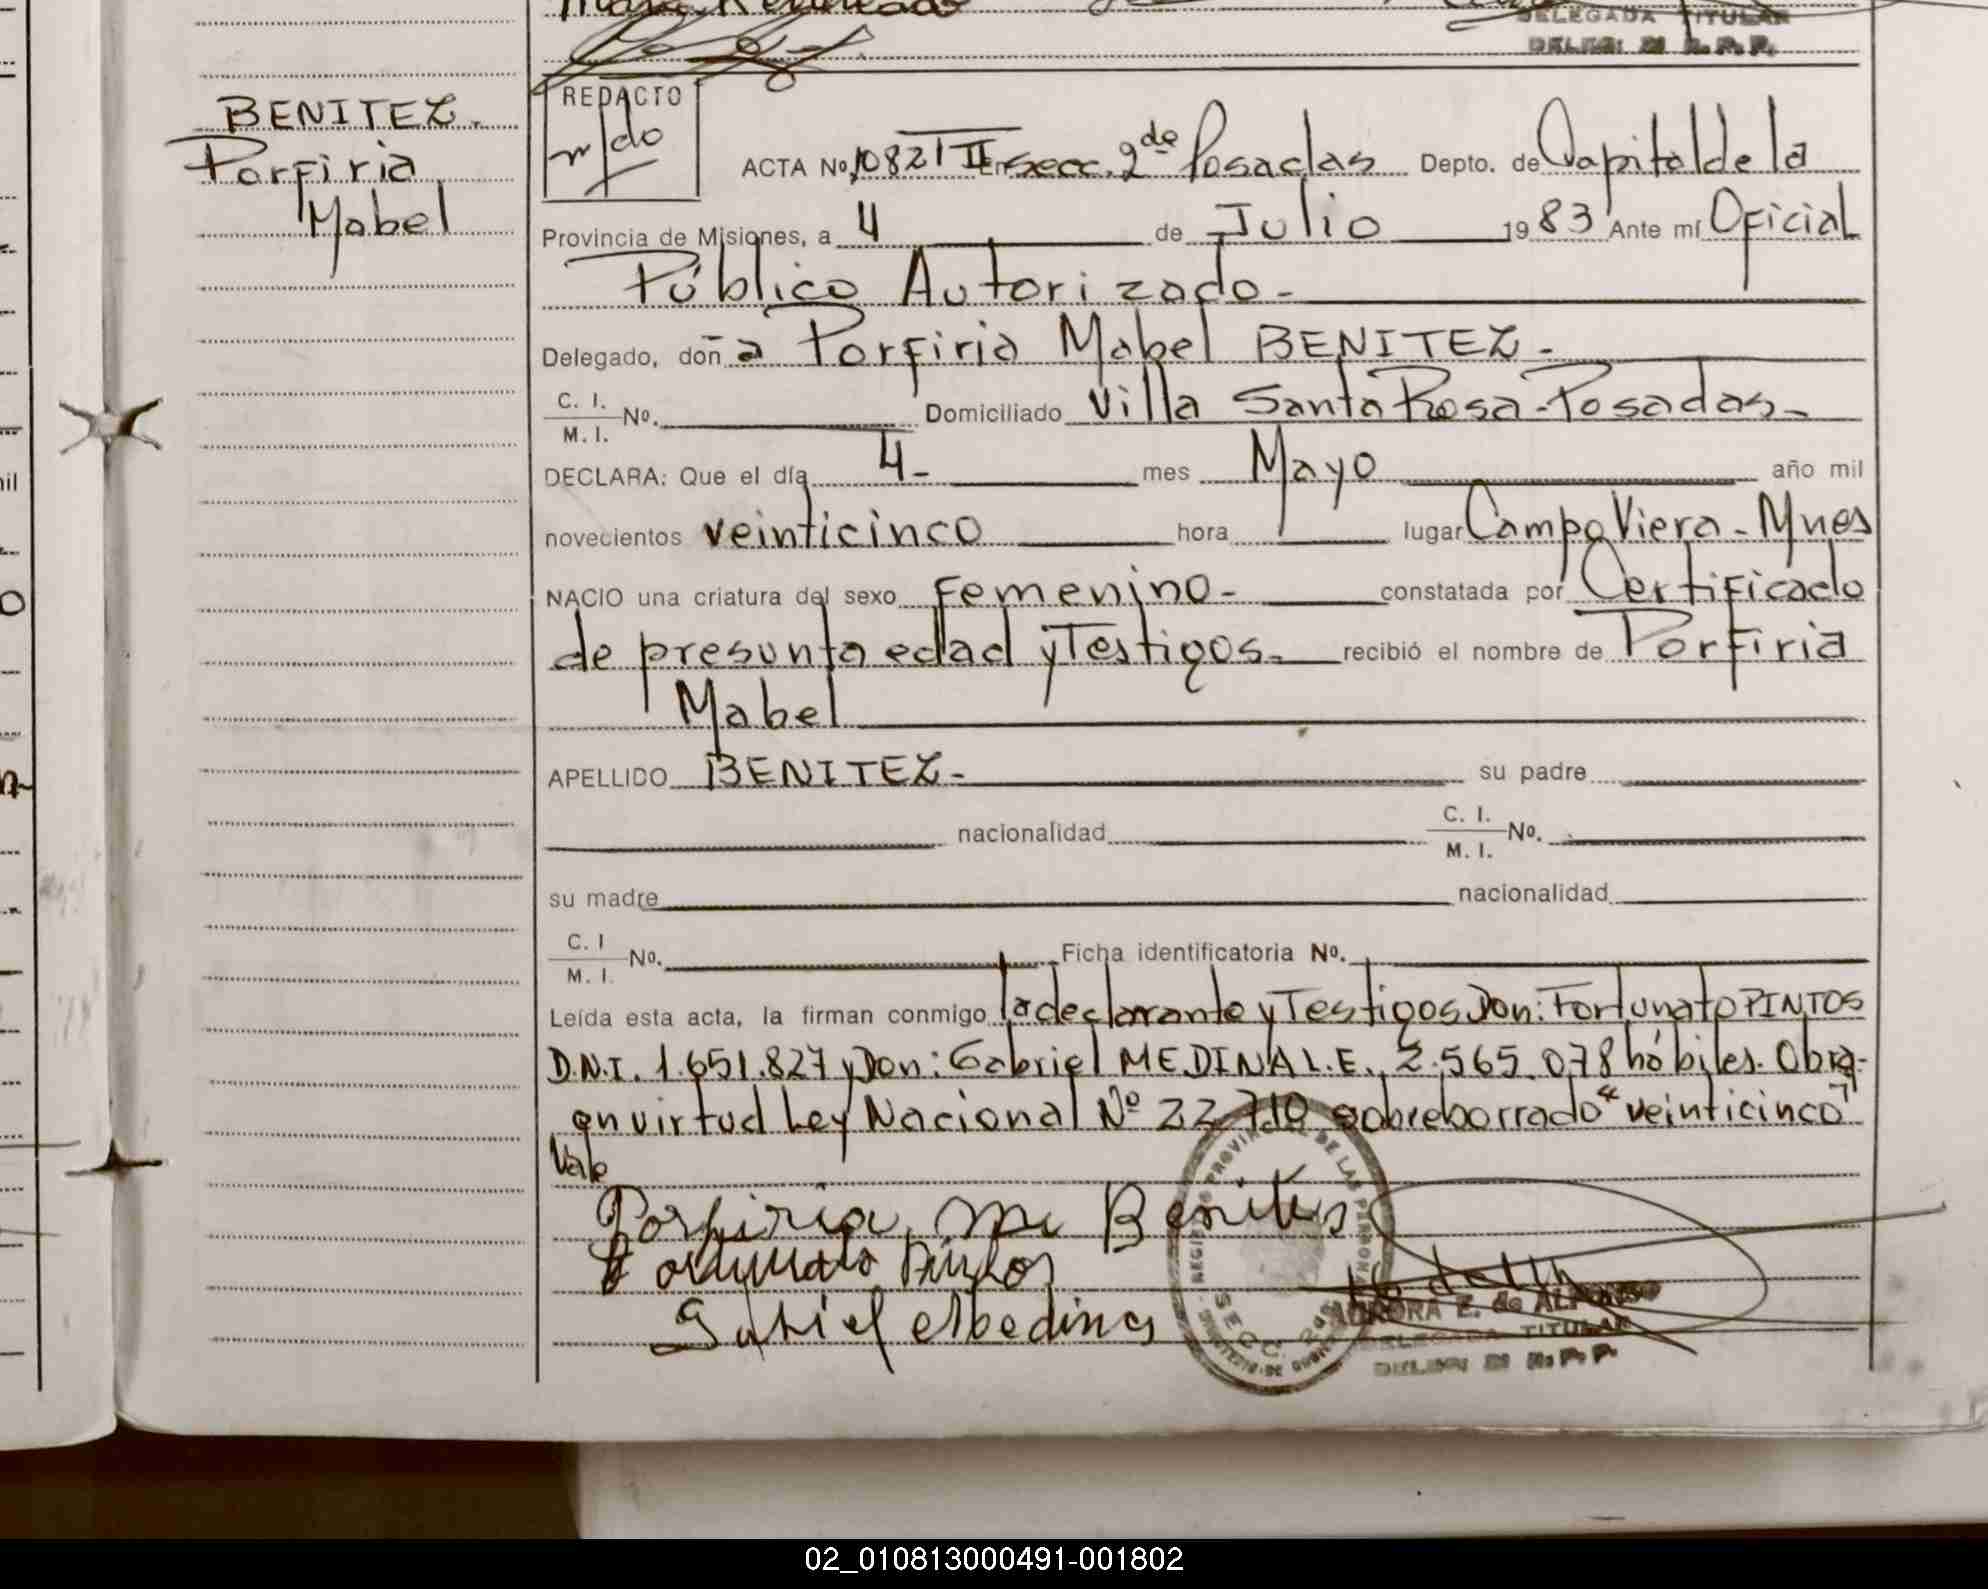 DELEGADA TITULAR
BENITEZ.
Porfiria
Mabel
REDACTO
ACTA Nº 1082 T II En secc. 2da Posadas Depto. de Capital de la
Provincia de Misiones, a 4 de Julio 1983 Ante mí Oficial
Público Autorizado-
Delegado, doña Porfiria Mabel BENITEZ.-
C. I.
M. I. Nº. Domiciliado Villa Santa Rosa-Posadas-
DECLARA: Que el día 4- mes Mayo año mil
novecientos veinticinco hora lugar Campo Viera-Mnes
NACIO una criatura del sexo Femenino- constatada por Certificado
de presunta edad y Testigos- recibió el nombre de Porfiria
Mabel
APELLIDO BENITEZ- su padre
nacionalidad C. I.
M. I. Nº.
su madre nacionalidad
C. I
M. I. Nº. Ficha identificatoria Nº.
Leída esta acta, la firman conmigo la declarante y Testigos Don: Fortunato PINTOS
D.N.I. 1.651.827 y Don: Gabriel MEDINA L.E. 2.565.078 hábiles. Obra-
en virtud Ley Nacional Nº 22.710 sobreborrado "veinticinco"
Vale
Porfiria M Benites
Fortunato Pintos
Gabriel
AURORA E. de ALFONSO
DELEGADA TITULAR
02_010813000491-001802